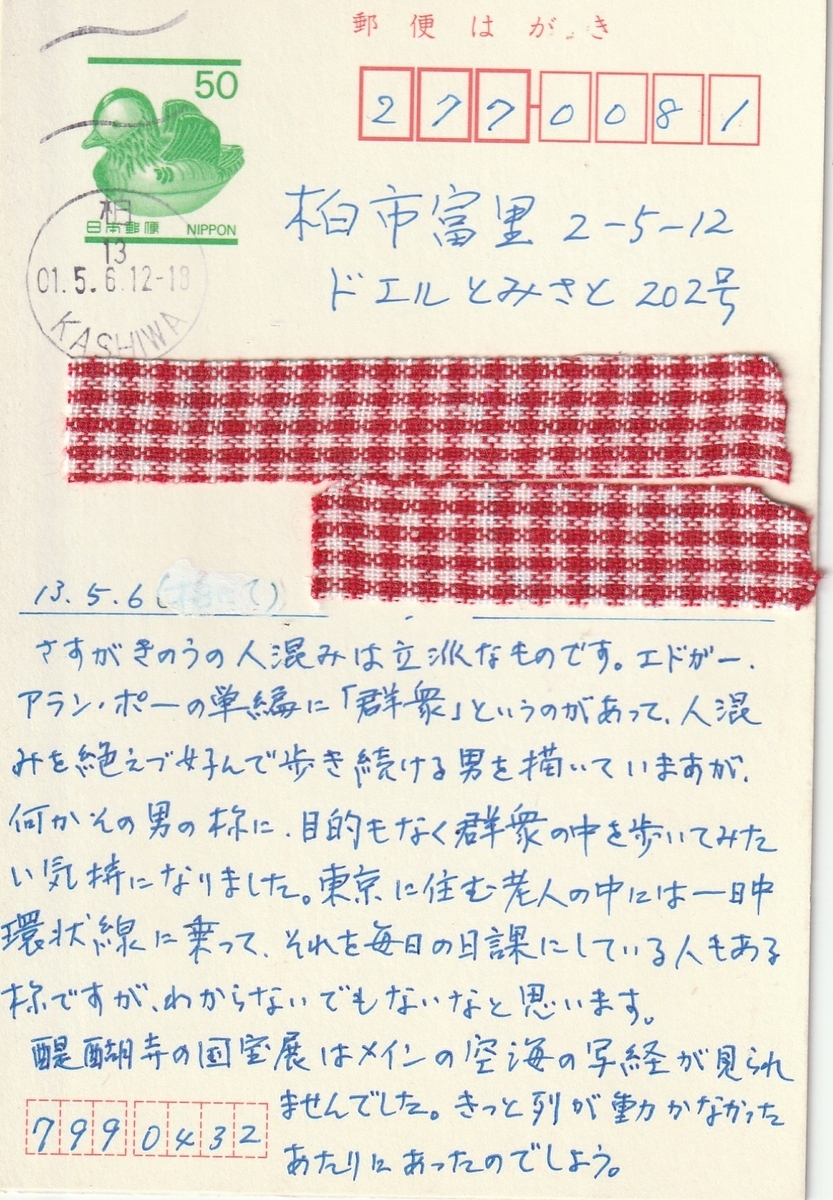 郵便はがき
50
日本郵便 NIPPON
277-0081
柏
13
01.5.6.12-18
KASHIWA
柏市富里 2-5-12
ドエルとみさと 202号
13.5.6(
さすがきのうの人混みは立派なものです。エドガー・
アラン・ポーの単編に「群衆」というのがあって、人混
みを絶えづ好んで歩き続ける男を描いていますが、
何かその男の様に、目的もなく群衆の中を歩いてみた
い気持になりました。東京に住む老人の中には一日中
環状線に乗って、それを毎日の日課にしている人もある
様ですが、わからないでもないなと思います。
醍醐寺の国宝展はメインの空海の写経が見られ
ませんでした。きっと列が動かなかった
あたりにあったのでしょう。
7990432